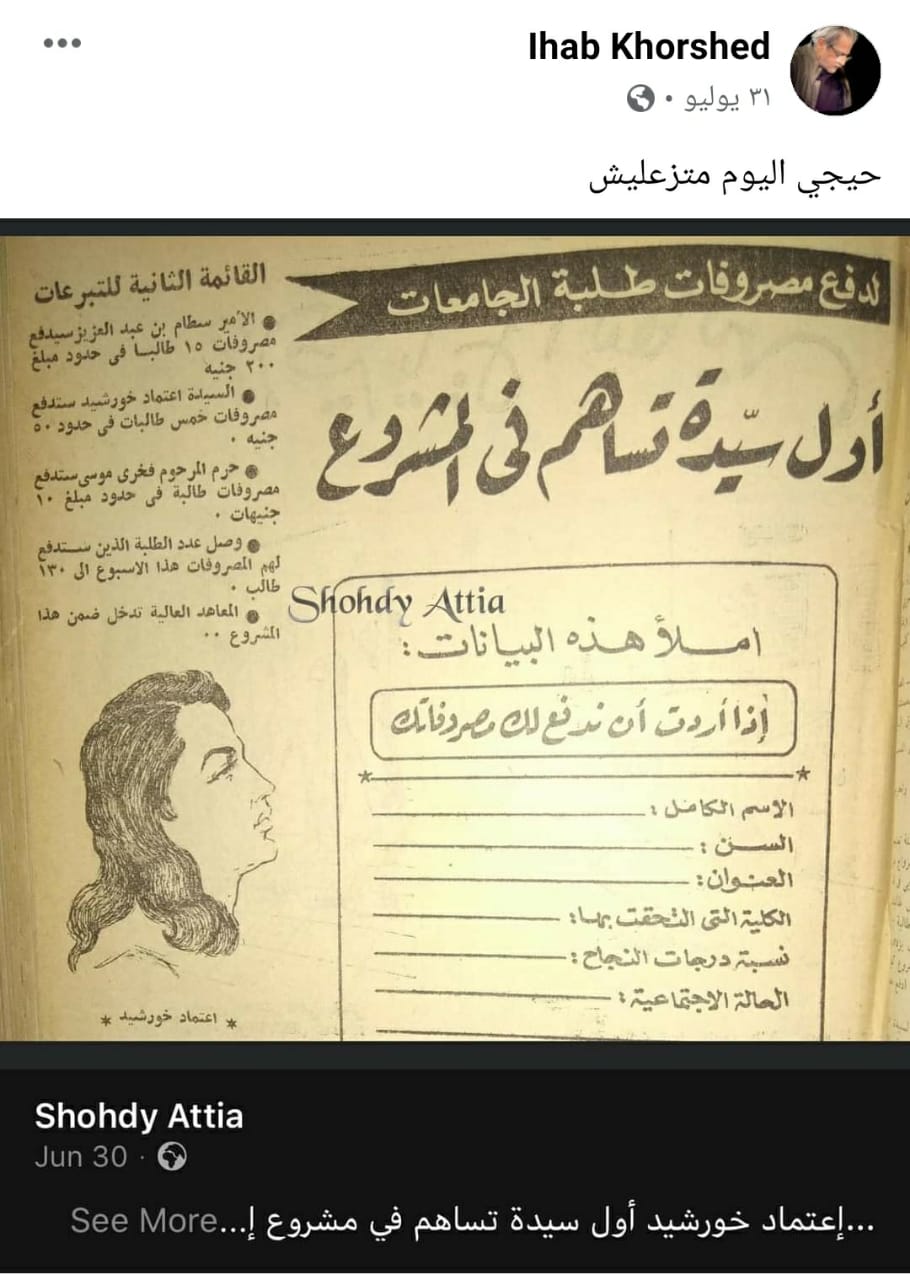 Ihab Khorshed
٣١ يوليو
حيجي اليوم متزعليش
لدفع مصروفات طلبة الجامعات
أول سيّدة تساهم في المشروع
القائمة الثانية للتبرعات
الأمير سطام بن عبد العزيز سيدفع
مصروفات ١٥ طالبا فى حدود مبلغ
٢٠٠ جنيه
السيدة اعتماد خورشيد ستدفع
مصروفات خمس طالبات فى حدود ٥٠
جنيه .
حرم المرحوم فخرى موسى ستدفع
مصروفات طالبة فى حدود مبلغ ١٠
جنيهات .
وصل عدد الطلبة الذين ستدفع
لهم المصروفات هذا الاسبوع الى ١٣٠
طالب .
المعاهد العالية تدخل ضمن هذا
المشروع ..
* اعتماد خورشيد *
Shohdy Attia
املأ هذه البيانات :
إذا أردت أن ندفع لك مصروفاتك
الاسم الكامل :
السن :
العنوان :
الكلية التى التحقت بها :
نسبة درجات النجاح :
الحالة الاجتماعية :
Shohdy Attia
Jun 30
...إعتماد خورشيد أول سيدة تساهم في مشروع إ...See More